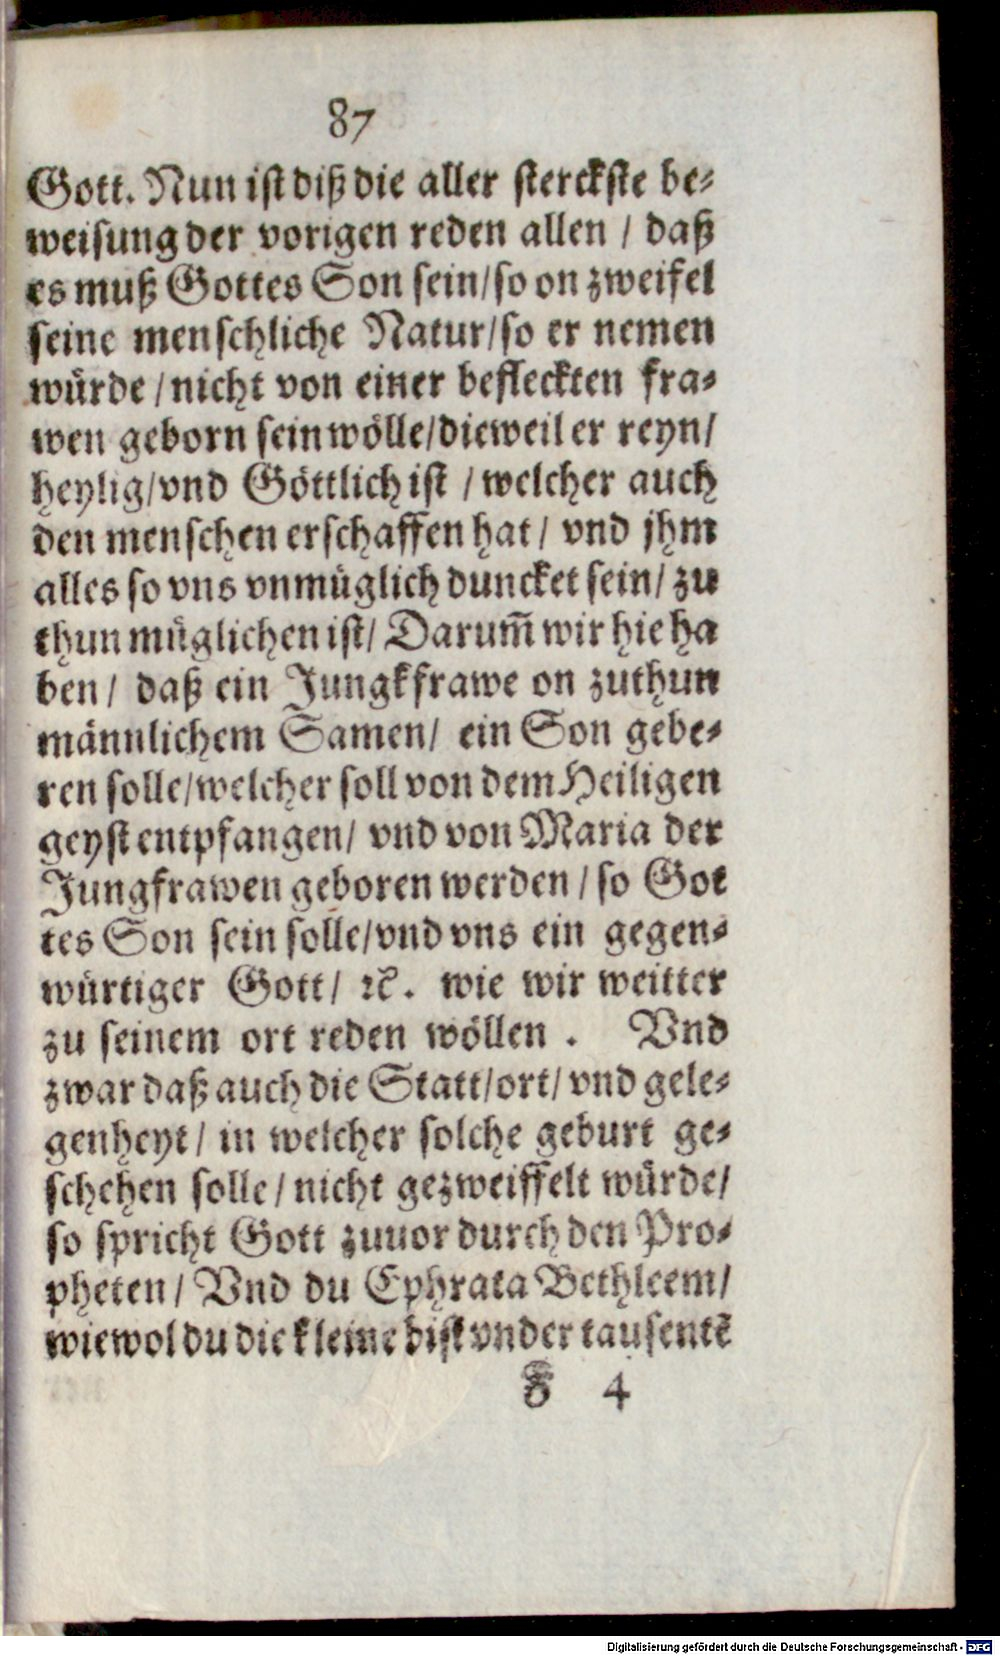 87
Gott. Nun ist diß die aller sterckste be⸗
weisung der vorigen reden allen / daß
es muß Gottes Son sein/so on zweifel
seine menschliche Natur/so er nemen
würde / nicht von einer befleckten fra⸗
wen geborn sein wölle/dieweil er reyn/
heylig/vnd Göttlich ist / welcher auch
den menschen erschaffen hat / vnd jhm
alles so vns vnmüglich duncket sein/ zu
thun müglichen ist/ Darum̃ wir hie ha
ben / daß ein Jungkfrawe on zuthun
männlichem Samen/ ein Son gebe⸗
ren solle/welcher soll von dem Heiligen
geyst entpfangen/ vnd von Maria der
Jungfrawen geboren werden / so Got
tes Son sein solle/vnd vns ein gegen⸗
würtiger Gott/ ꝛc. wie wir weitter
zu seinem ort reden wöllen . Vnd
zwar daß auch die Statt/ort/ vnd gele⸗
genheyt / in welcher solche geburt ge⸗
schehen solle / nicht gezweiffelt würde/
so spricht Gott zuuor durch den Pro⸗
pheten / Vnd du Ephrata Bethleem/
wiewol du die kleine bist vnder tausentẽ
F 4
Digitalisierung gefördert durch die Deutsche Forschungsgemeinschaft - DFG